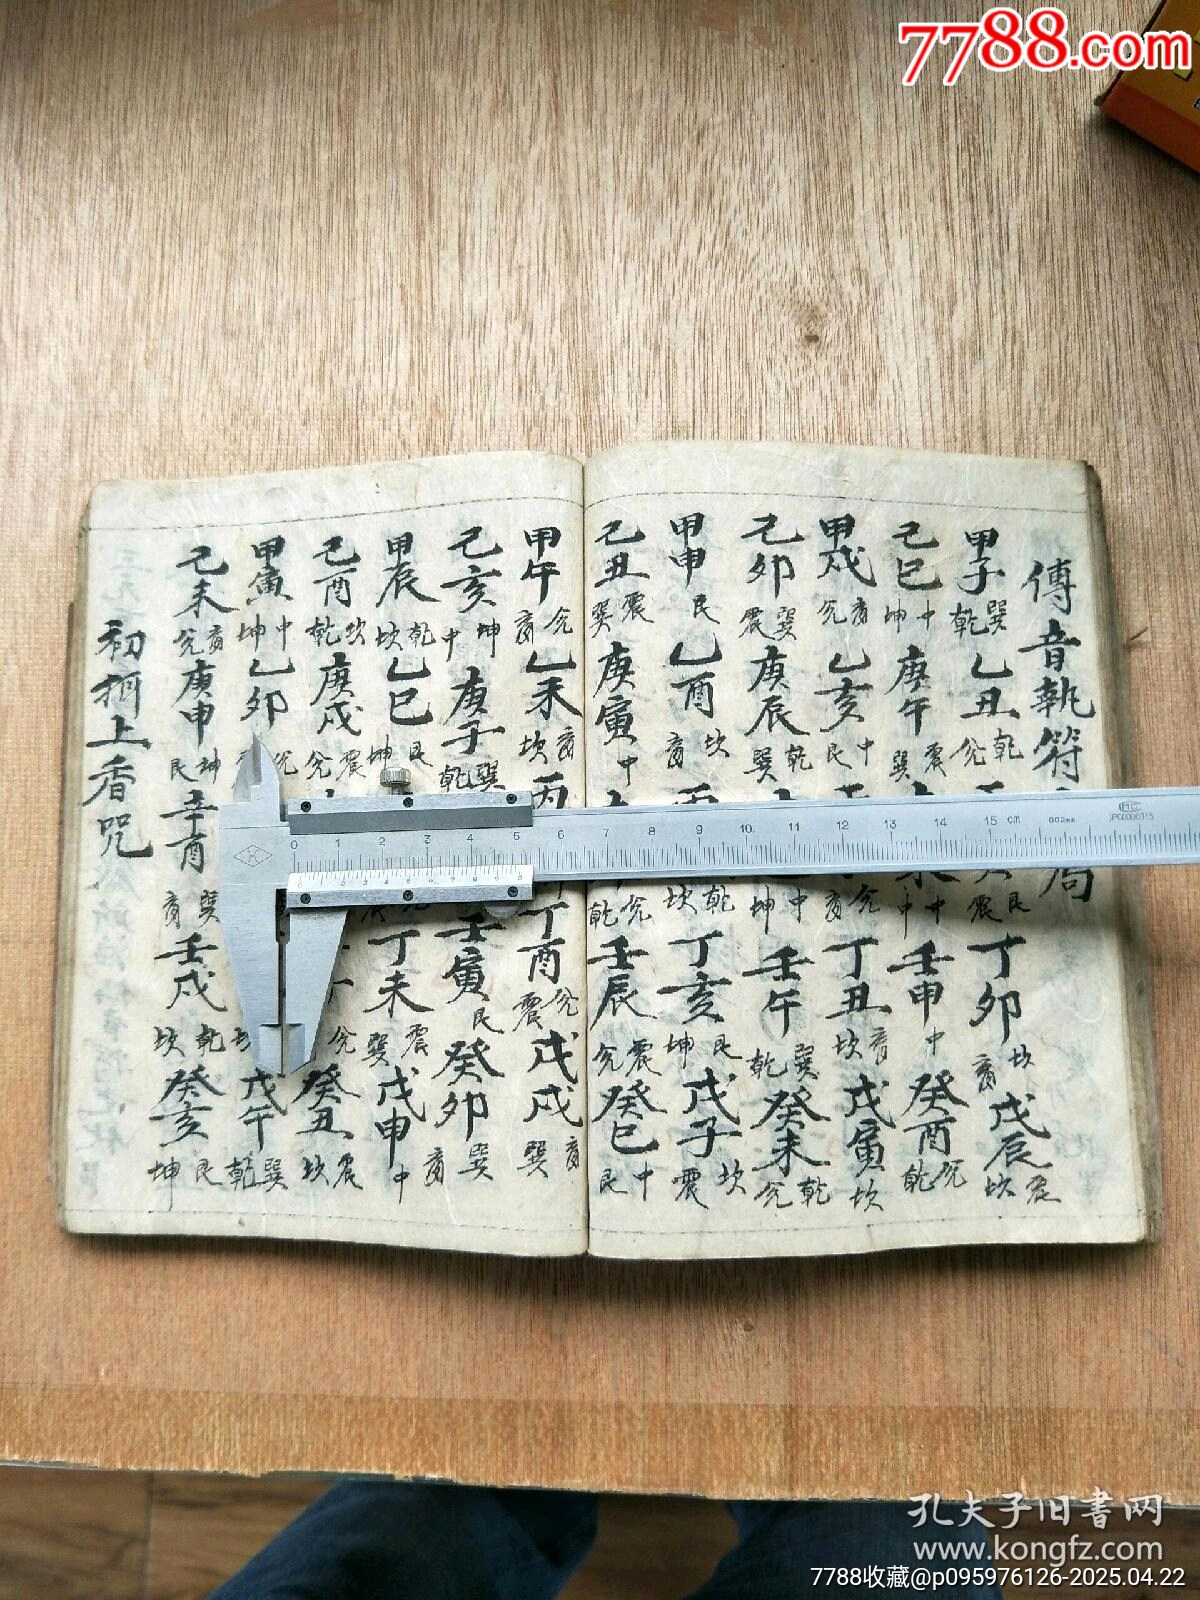 7788.com
傳音執符局
甲子巽乾乙丑乾兌艮震丁卯坎离戊辰坎
己巳中坤庚午震巽未中中壬申中癸酉兌乾
甲戌离兌乙亥中艮兌离丁丑离坎戊寅坎
己卯巽震庚辰乾巽中坤壬午巽乾癸未乾兌
甲申艮乙酉坎离丙乾坎丁亥艮坤戊子坎震
己丑震巽庚寅中兌乾壬辰震兌癸巳中艮
甲午兌离乙未离坎丙丁酉兌震戊戌离巽
己亥坤中庚子巽乾壬寅艮癸卯巽离
甲辰乾坎乙巳艮坤丁未震巽戊申中
己酉坎乾庚戌震兌兌癸丑震坎
甲寅中坤乙卯兌戊午巽乾
己未离兌庚申坤艮辛酉巽离壬戌乾坎癸亥艮坤
初上香咒
0 1 2 3 4 5 6 7 8 9 10 11 12 13 14 15 cm 0.02mm
孔夫子旧书网
www.kongfz.com
7788收藏@p095976126-2025.04.22